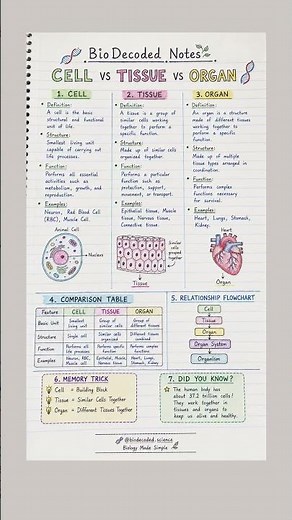 BioDecoded Notes
CELL vs TISSUE vs ORGAN
1. CELL
Definition:
A cell is the basic
structural and functional
unit of life.
Structure:
Smallest living unit
capable of carrying out
life processes.
Function:
Performs all essential
activities such as
metabolism, growth, and
reproduction.
Examples:
Neuron, Red Blood Cell
(RBC), Muscle Cell.
Animal Cell
Nucleus
2. TISSUE
Definition:
A tissue is a group of
similar cells working
together to perform a
specific function.
Structure:
Made up of similar cells
organized together.
Function:
Performs a particular
function such as
protection, support,
movement, or transport.
Examples:
Epithelial Tissue, Muscle
Tissue, Nervous Tissue,
Connective Tissue.
Similar
cells
grouped
together
Tissue
3. ORGAN
Definition:
An organ is a structure
made of different tissues
working together to
perform a specific
function.
Structure:
Made up of multiple
tissue types arranged in
coordination.
Function:
Performs complex
functions necessary
for survival.
Examples:
Heart, Lungs, Stomach,
Kidney.
Heart
Organ
4. COMPARISON TABLE
Feature CELL TISSUE ORGAN
Basic Unit Smallest living unit Group of similar cells Group of different tissues
Structure Single cell Similar cells organized Different tissues combined
Function Performs all life processes Performs specific function Performs complex functions
Examples Neuron, RBC, Muscle Cell Epithelial, Muscle, Nervous Heart, Lungs, Kidney
5. RELATIONSHIP FLOWCHART
Cell
Tissue
Organ
Organ System
Organism
6. MEMORY TRICK
Cell = Building Block
Tissue = Similar Cells Together
Organ = Different Tissues Together
7. DID YOU KNOW?
The human body has
about 37.2 trillion cells!
They work together in
tissues and organs to
keep us alive and healthy.
@biodecoded.science
Biology Made Simple